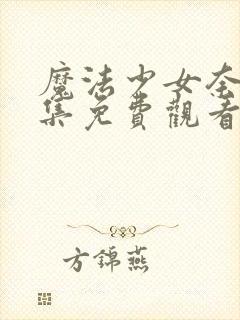 魔法少女奈
集免費觀看
方錦燕